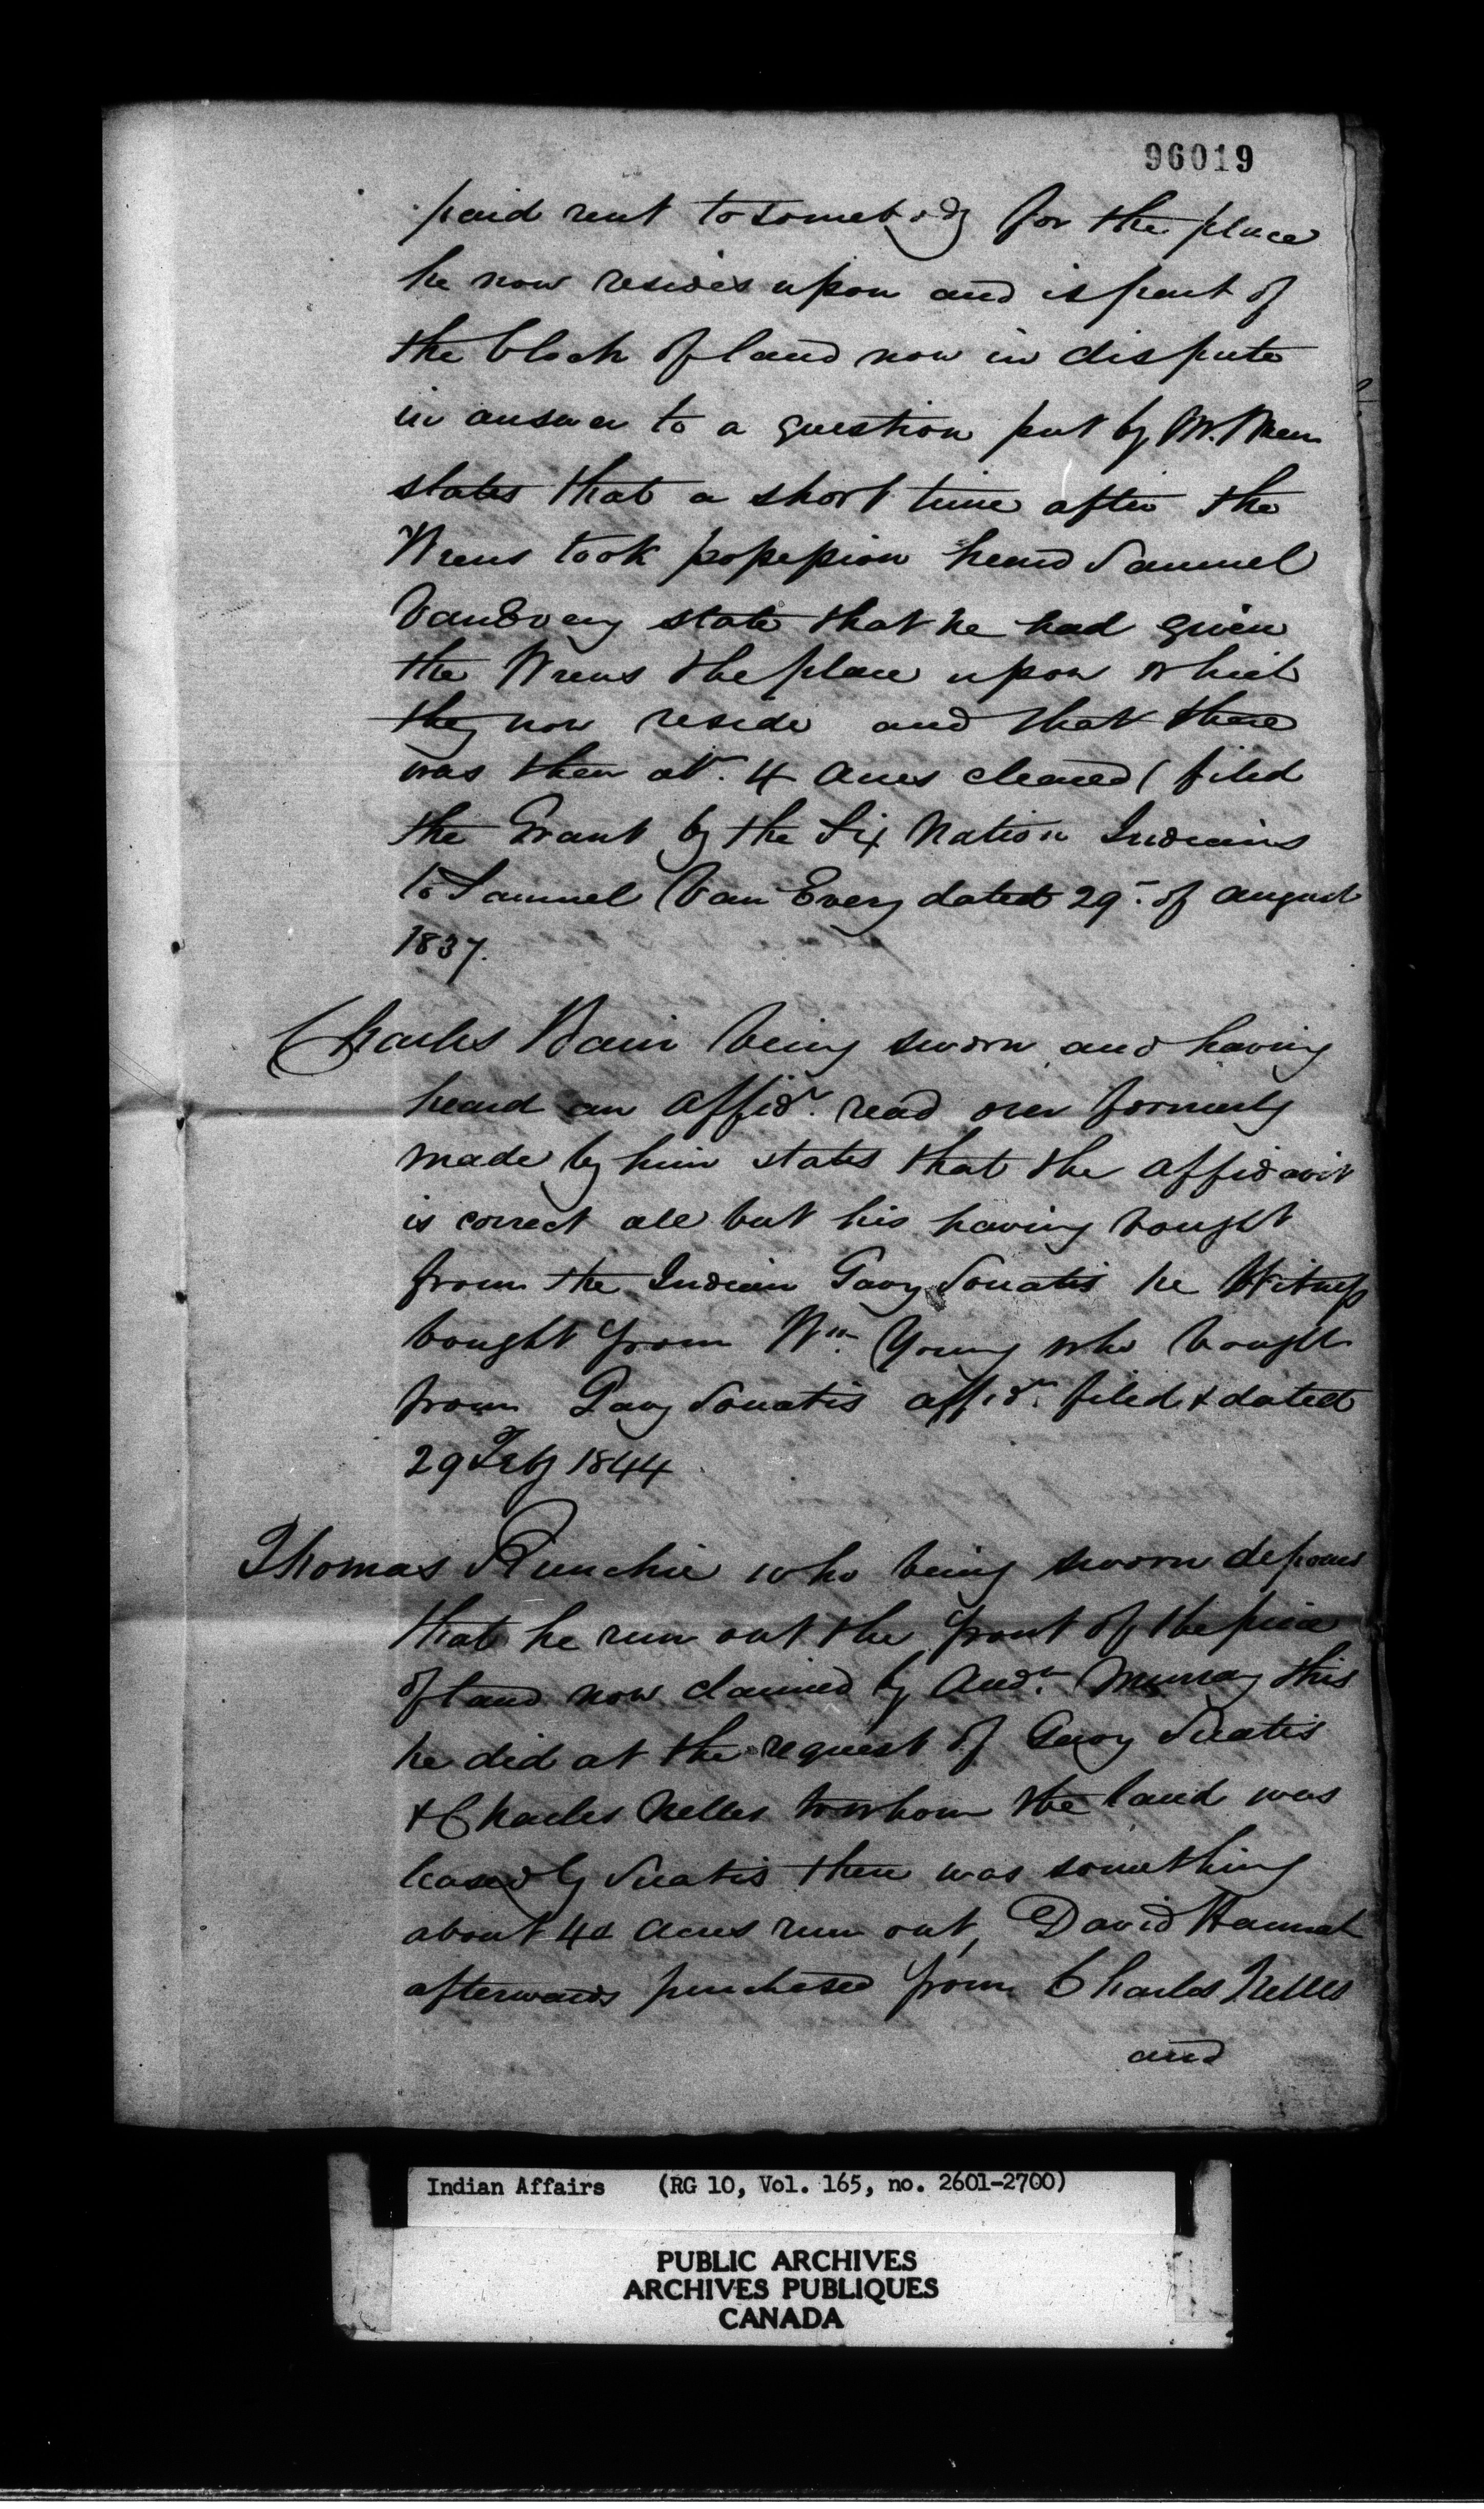 96019
paid rent to somebody for the place
he now resides upon and is part of
the block of land now in dispute
in answer to a question put by Mr. Wren
states that a short time after the
Wrens took possession heard Samuel
VanEvery state that he had given
the Wrens the place upon which
they now reside and that there
was then abt. 4 acres cleared (filed
the Grant by the Six Nation Indians
to Samuel Van Every dated 29th. of August
1837.
Charles Bain being sworn and having
heard an affidt. read over formerly
made by him states that the affidavit
is correct all but his having bought
from the Indian Gavy Souatis he Witness
bought from Wm. Young who bought
from Gavy Souatis affidt. filed & dated
29 Feby 1844
Thomas Runchie who being sworn deposes
that he run out the front of the piece
of land now claimed by Andw. Murray this
he did at the request of Gavy Suatis
& Charles Nelles to whom the land was
leased by Suatis there was something
about 40 acres run out, David Hannah
afterwards purchased from Charles Nelles
and
Indian Affairs (RG 10, Vol. 165, no. 2601-2700)
PUBLIC ARCHIVES
ARCHIVES PUBLIQUES
CANADA